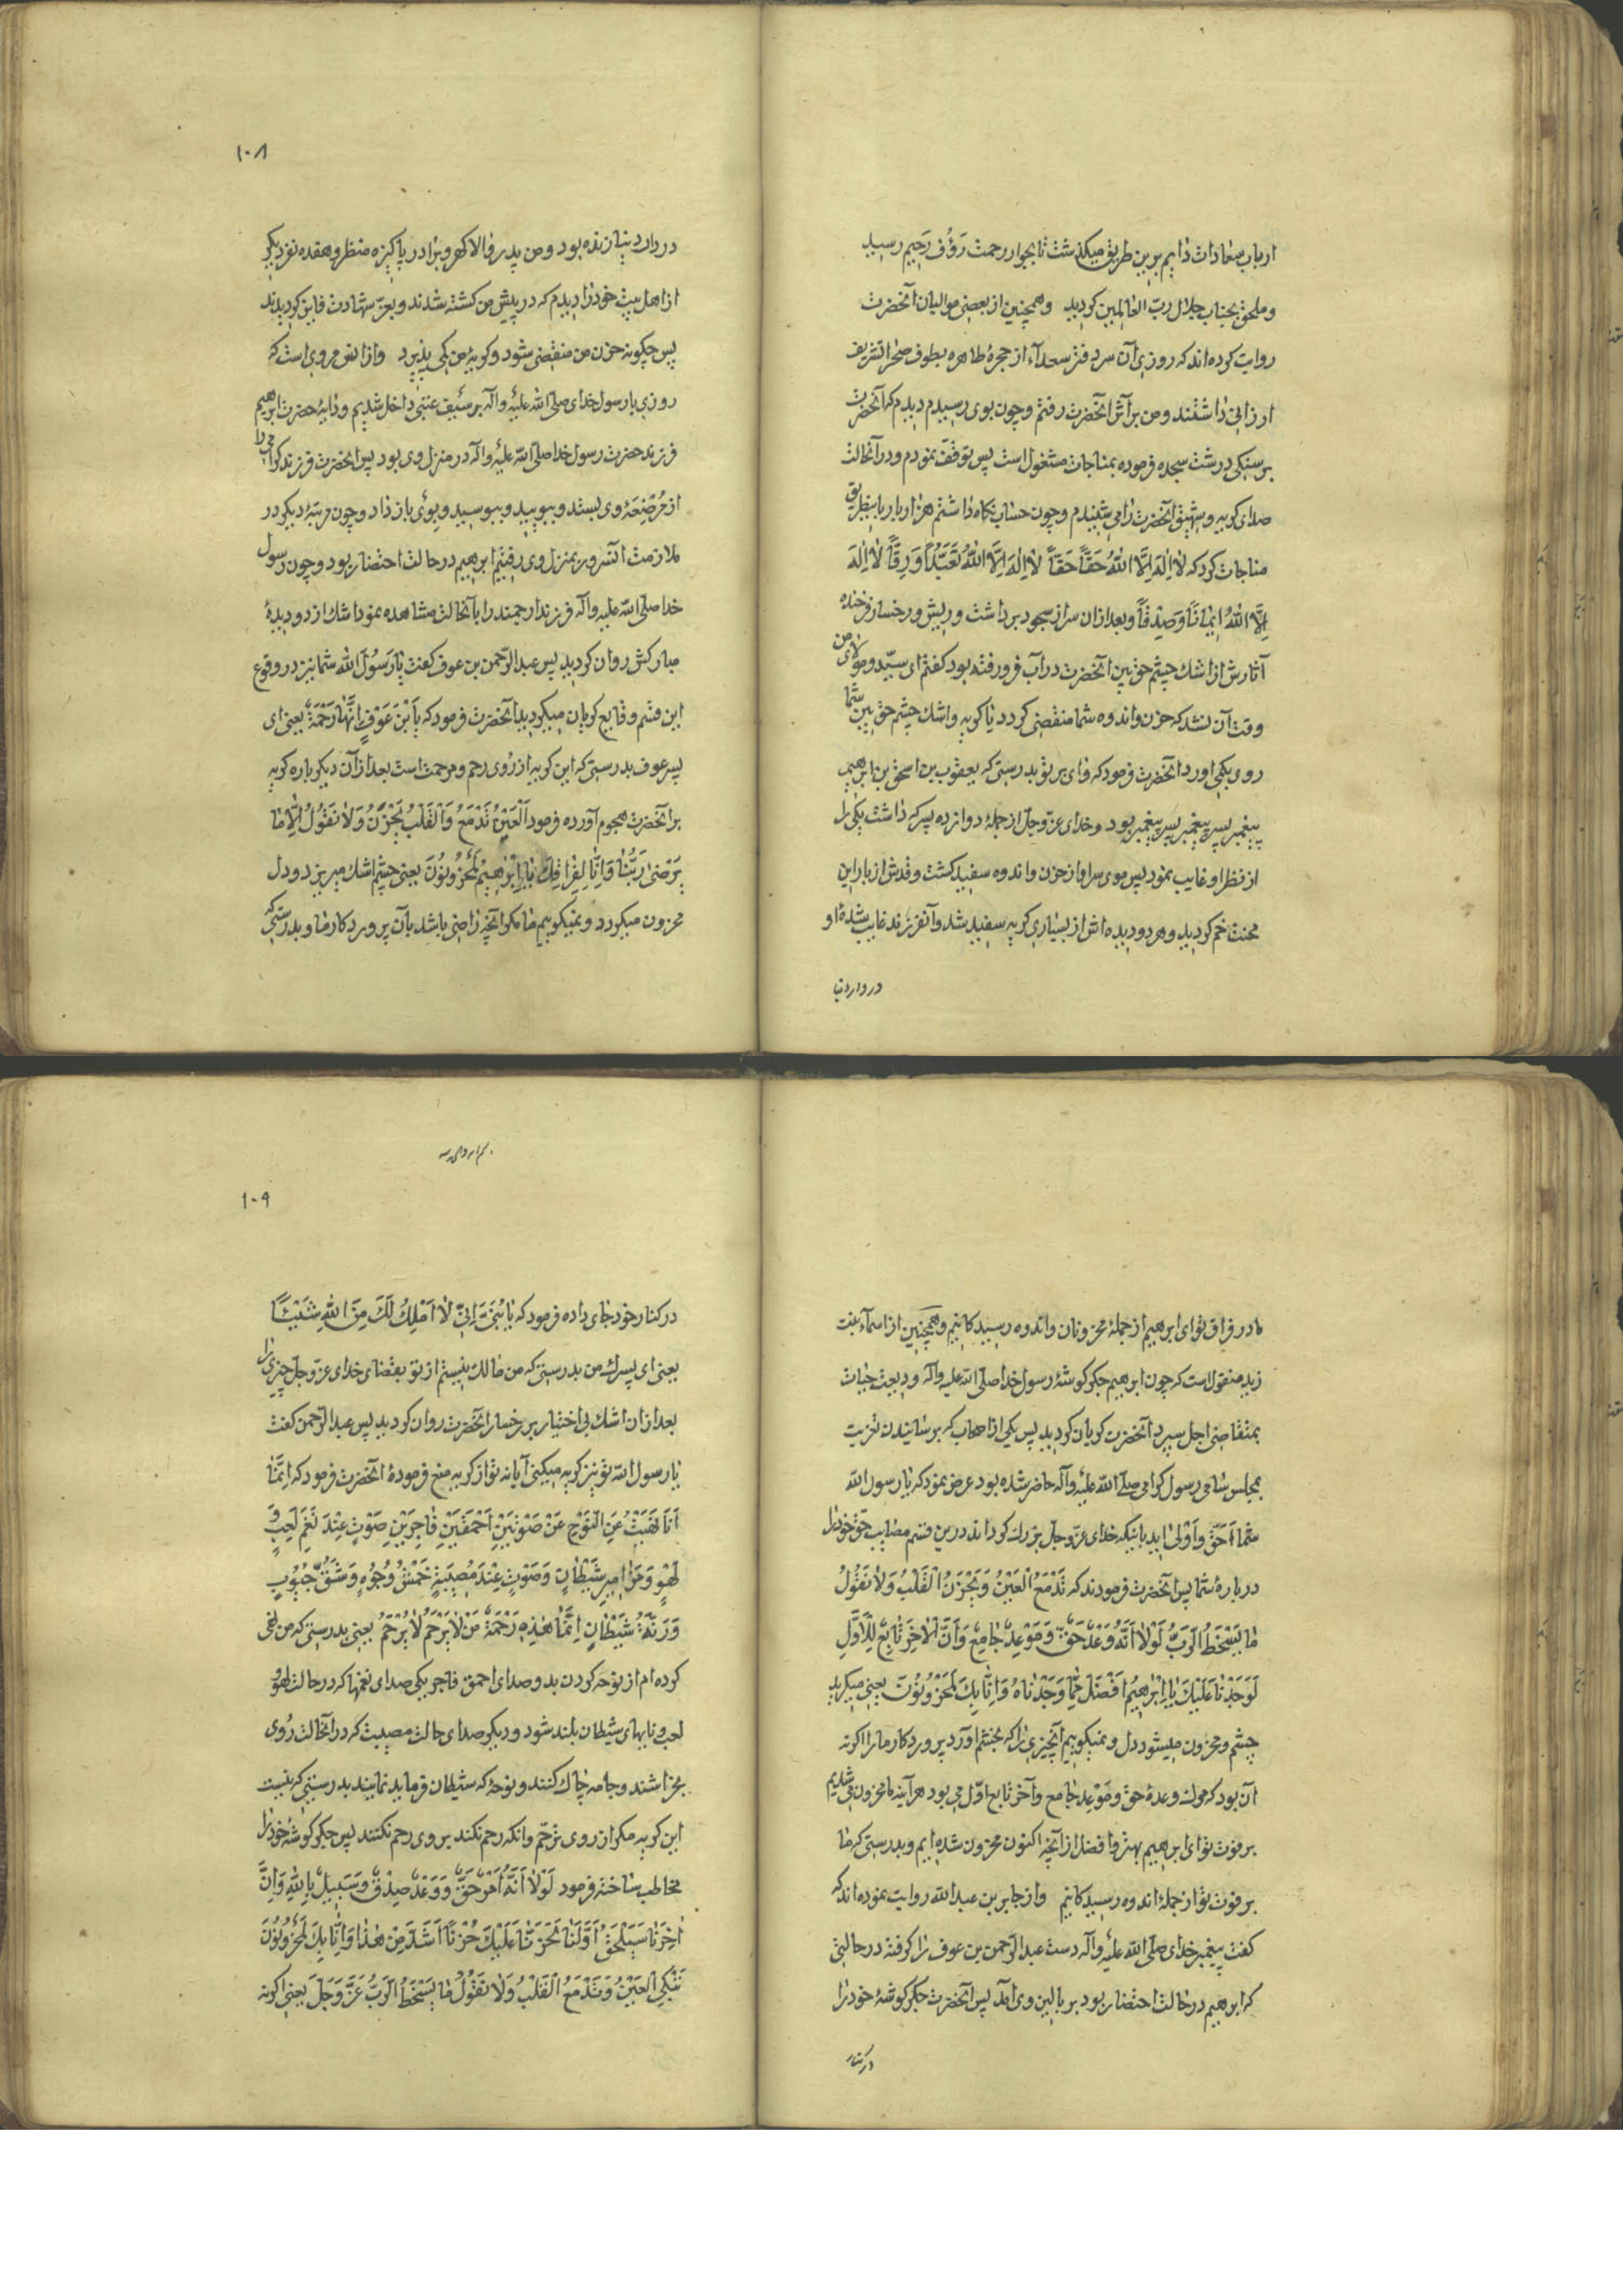 ارباب سعادات دایم برین طریق میکذشت تا بجوار رحمت رَؤُف رَحِیم رسید
و ملحق بجناب جلال ربّ العالمین کردید وهمچنین از بعضی موالیان آنحضرت
روایت کرده‌اند که روزی آن سردفتر سعدآء از حجرهٔ طاهره بطرف صحرا تشریف
ارزانی داشتند ومن بر آثر آنحضرت رفتم وچون بوی رسیدم دیدم که آنحضرت
بر سنکی درشت سجده فرموده بمناجات مشغول است پس توقف نمودم ودر آنحالت
صدای کریه وشهیق آنحضرت را می شنیدم وچون حساب نکاه داشتم هزار بار باینطریق
مناجات کرد که لٰا اِلٰهَ اِلَّا اللّٰهُ حَقًّا حَقًّا لٰا اِلٰهَ اِلَّا اللّٰهُ تَعَبُّدًا وَرِقًّا لٰا اِلٰهَ
اِلَّا اللّٰهُ اِیمٰانًا وَصِدْقًا وبعد از ان سر از سجود برداشت وریش ورخسار فرخنده
آثارش از اشک چشم حق بین آنحضرت در آب فرو رفته بود کفتم ای سیّد ومولای من
وقت آن نشد که حزن واندوه شما منقضی کردد یا کریه واشک چشم حق بین شما
روی بکمی اورد آنحضرت فرمود که وای بر تو بدرستی که یعقوب بن اسحق بن ابرهیم
پیغمبر پسر پیغمبر پسر پیغمبر بود وخدای عزّ وجلّ از جملهٔ دوازده پسر که داشت یکی را
از نظر او غایب نمود پس موی سر او از حزن واندوه سفید کشت وقدش از بار این
محنت خم کردید وهر دو دیده‌اش از بسیاری کریه سفید شد وآنفرزند غایب شدهٔ او
در دار دنیا
۱۰۸
در دار دنیا زنده بود ومن پدر والا کهر وبرادر پاکیزه منظر وهفده نفر دیکر
از اهل بیت خود را دیدم که در پیش من کشته شدند وبعزّ شهادت فایز کردیدند
پس چکونه حزن من منقضی شود وکریهٔ من کمی پذیرد واز انس مروی است که
روزی با رسول خدای صلی اللّه علیه وآله بر سیف عنبی داخل شدیم ودایهٔ حضرت ابرهیم
فرزند حضرت رسول خدا صلی اللّه علیه وآله در منزل وی بود پس آنحضرت فرزند کرامی را
از مُرْضِعَهٔ وی بستد وببویید وببوسید وبوی باز داد وچون مرتبهٔ دیکر در
ملازمت آنسرور بمنزل وی رفتیم ابرهیم در حالت احتضار بود وچون رسول
خدا صلی اللّه علیه وآله فرزند ارجمند را بآنحالت مشاهده نمود اشک از دو دیدهٔ
مبارکش روان کردید پس عبد الرّحمن بن عوف کفت یٰا رَسُولَ اللّٰه شما نیز در وقوع
این قسم وقایع کریان میکردید آنحضرت فرمود که یَا بْنَ عَوْفٍ اِنَّهٰا رَحْمَةٌ یعنی ای
پسر عوف بدرستی که این کریه از رُوی رحم ومرحمت است بعد از آن دیکر باره کریه
بر آنحضرت هجوم آورده فرمود اَلْعَیْنُ تَدْمَعُ وَالْقَلْبُ یَحْزَنُ وَلٰا نَقُولُ اِلّٰا مٰا
یَرْضیٰ رَبُّنٰا وَاِنّٰا لِفِرٰاقِكَ یٰا اِبْرٰهیمُ لَمَحْزُونُونَ یعنی چشم اشک میریزد ودل
محزون میکردد ونمیکوییم ما مکر آنچه راضی باشد بآن پروردکار ما وبدرستی که
ما در فراق تو ای ابرهیم از جملهٔ محزونان واندوه رسیدکانیم وهمچنین از اسمآء بنت
زید منقول است که چون ابرهیم جکر کوشهٔ رسول خدا صلی اللّه علیه وآله ودیعت حیات
بمتقاضی اجل سپرد آنحضرت کریان کردید پس یکی از اصحاب که برسانیدن تعزیت
بمجلس سامی رسول کرامی صلی اللّه علیه وآله حاضر شده بود عرض نمود که یا رسول اللّه
شما اَحَقّ واَوْلیٰ اید باینکه خدای عزّ وجلّ بزرك کرداند درین قسم مصایب حق خود را
دربارهٔ شما پس آنحضرت فرمودند که تَدْمَعُ الْعَیْنُ وَیَحْزَنُ الْقَلْبُ وَلٰا نَقُولُ
مٰا یُسْخِطُ الرَّبَّ لَوْلٰا اَنَّهُ وَعْدٌ حَقٌّ وَمَوْعِدٌ جٰامِعٌ وَاَنَّ الْاٰخِرَ تٰابِعٌ لِلْاَوَّلِ
لَوَجَدْنٰا عَلَیْكَ یٰا اِبْرٰهیمُ اَفْضَلَ مِمّٰا وَجَدْنٰاهُ وَاِنّٰا بِكَ لَمَحْزُونُونَ یعنی میکرید
چشم ومحزون میشود دل ونمیکوییم آنچیزی را که بخشم اورد پروردکار ما را اکر نه
آن بود که مرك وعدهٔ حق ومَوْعِد جٰامع وآخر تابع اوّل می بود هر آینه ما محزون می شدیم
بر فوت تو ای ابرهیم بهتر وافضل از آنچه اکنون محزون شده‌ایم وبدرستی که ما
بر فوت تو از جملهٔ اندوه رسیدکانیم واز جابر بن عبد اللّه روایت نموده‌اند که
کفت پیغمبر خدای صلی اللّه علیه وآله دست عبد الرّحمن بن عوف را کرفته در حالتی
که ابرهیم در حالت احتضار بود بر بالین وی آمد پس آنحضرت جکر کوشهٔ خود را
در کنار
۱۰۹
در کنار خود جای داده فرمود که یٰا بُنَیَّ اِنّی لٰا اَمْلِكُ لَكَ مِنَ اللّٰهِ شَیْئًا
یعنی ای پسرك من بدرستی که من مالك نیستم از تو بقضای خدای عزّ وجلّ چیزی را
بعد از ان اشك بی اختیار بر رخسار آنحضرت روان کردید پس عبد الرّحمن کفت
یا رسول اللّه تو نیز کریه میکنی آیا نه تو از کریه منع فرمودهٔ آنحضرت فرمود که اِنَّمٰا
اَنَا نَهَیْتُ عَنِ النَّوْحِ عَنْ صَوْتَیْنِ اَحْمَقَیْنِ فٰاجِرَیْنِ صَوْتٍ عِنْدَ نَغَمِ لَعِبٍ وَ
لَهْوٍ وَمَزٰامیرِ شَیْطٰانٍ وَصَوْتٍ عِنْدَ مُصیبَةٍ خَمْشِ وُجُوهٍ وَشَقِّ جُیُوبٍ
وَرَنَّةِ شَیْطٰانٍ اِنَّمٰا هٰذِهِ رَحْمَةٌ مَنْ لٰا یَرْحَمُ لٰا یُرْحَمُ یعنی بدرستی که من نهی
کرده‌ام از نوحه کردن بدو صدای احمق فاجر یکی صدای نغمها که در حالت لهو و
لعب ونایهای شیطان بلند شود ودیکر صدای حالت مصیبت که در آنحالت رُوی
بخراشند وجامه چاك کنند ونوحه که شیطان فرماید نمایند بدرستی که نیست
این کریه مکر از روی ترحّم وانکه رحم نکند بر وی رحم نکنند پس جکر کوشهٔ خود را
مخاطب ساخته فرمود لَوْلٰا اَنَّهُ اَمْرٌ حَقٌّ وَوَعْدٌ صِدْقٌ وَسَبیلٌ بِاللّٰهِ وَاَنَّ
اٰخِرَنٰا سَیَلْحَقُ اَوَّلَنٰا لَحَزَنّٰا عَلَیْكَ حُزْنًا اَشَدَّ مِنْ هٰذٰا وَاِنّٰا بِكَ لَمَحْزُونُونَ
تَبْکِی الْعَیْنُ وَتَدْمَعُ الْقَلْبُ وَلٰا نَقُولُ مٰا یُسْخِطُ الرَّبَّ عَزَّ وَجَلَّ یعنی اکر نه